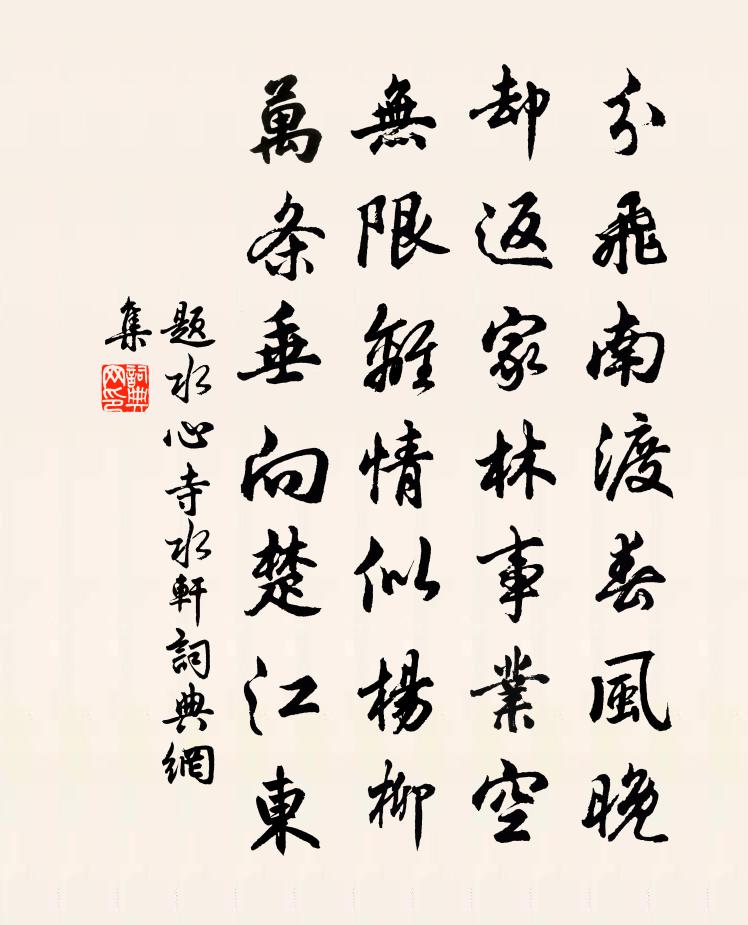 分飛南渡春風晚
却返家林事業空
無限離情似楊柳
萬条垂向楚江東
題水心寺水軒詞典網
集
詞典网印